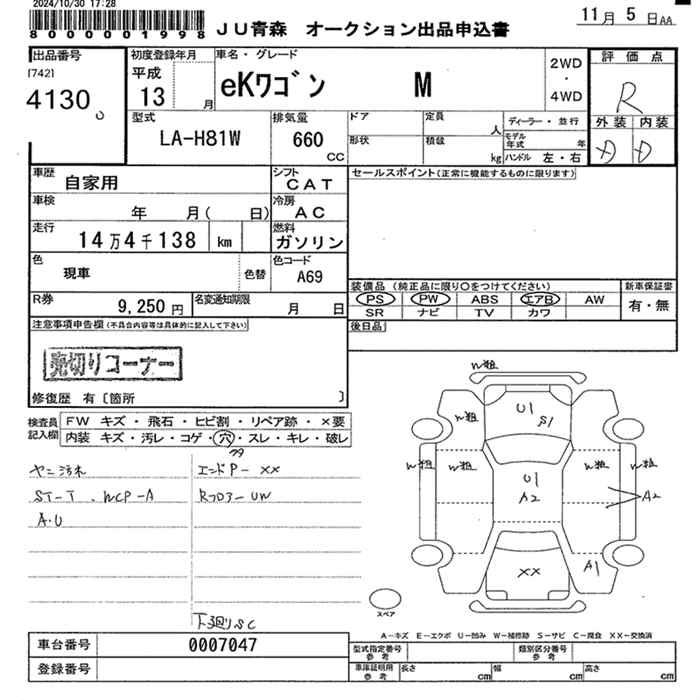 2024/10/30 17:28
8000001998
JU青森 オークション出品申込書
11月 5日AA
出品番号
[742]
4130
初度登録年月
平成
13 月
車名・グレード
eKワゴン M
2WD
・
4WD
評価点
R
外装 内装
D D
型式
LA-H81W
排気量
660
CC
ドア
定員
人
ディーラー・並行
形状
積載
kg
モデル年式 年
ハンドル 左・右
車歴
自家用
シフト
CAT
セールスポイント(正常に機能するものに限ります)
車検
年 月( 日)
冷房
AC
走行
14万4千138 km
燃料
ガソリン
色
現車
色替
色コード
A69
装備品 (純正品に限り○をつけてください)
新車保証書
PS PW ABS エアB AW
有・無
SR ナビ TV カワ
R券
9,250 円
名変通知期限
月 日
後日品
注意事項申告欄(不具合内容等は具体的に記入して下さい)
売切りコーナー
修復歴 有〔箇所 〕
検査員記入欄
FW キズ・飛石・ヒビ割・リペア跡・×要
内装 キズ・汚レ・コゲ・穴・スレ・キレ・破レ
ヤニ汚れ
エンドP-XX
ST-T . WCP-A
Rフロアー UW
A・U
下廻りSC
W粗
W粗
U1
S1
W粗
W粗
W粗
W粗
U1
A2
A2
XX
A1
スペア
A-キズ E-エクボ U-凹み W-補修跡 S-サビ C-腐食 XX-交換済
車台番号
0007047
型式指定番号
参考
類別区分番号
参考
登録番号
車庫証明用
参考
長さ cm
幅 cm
高さ cm